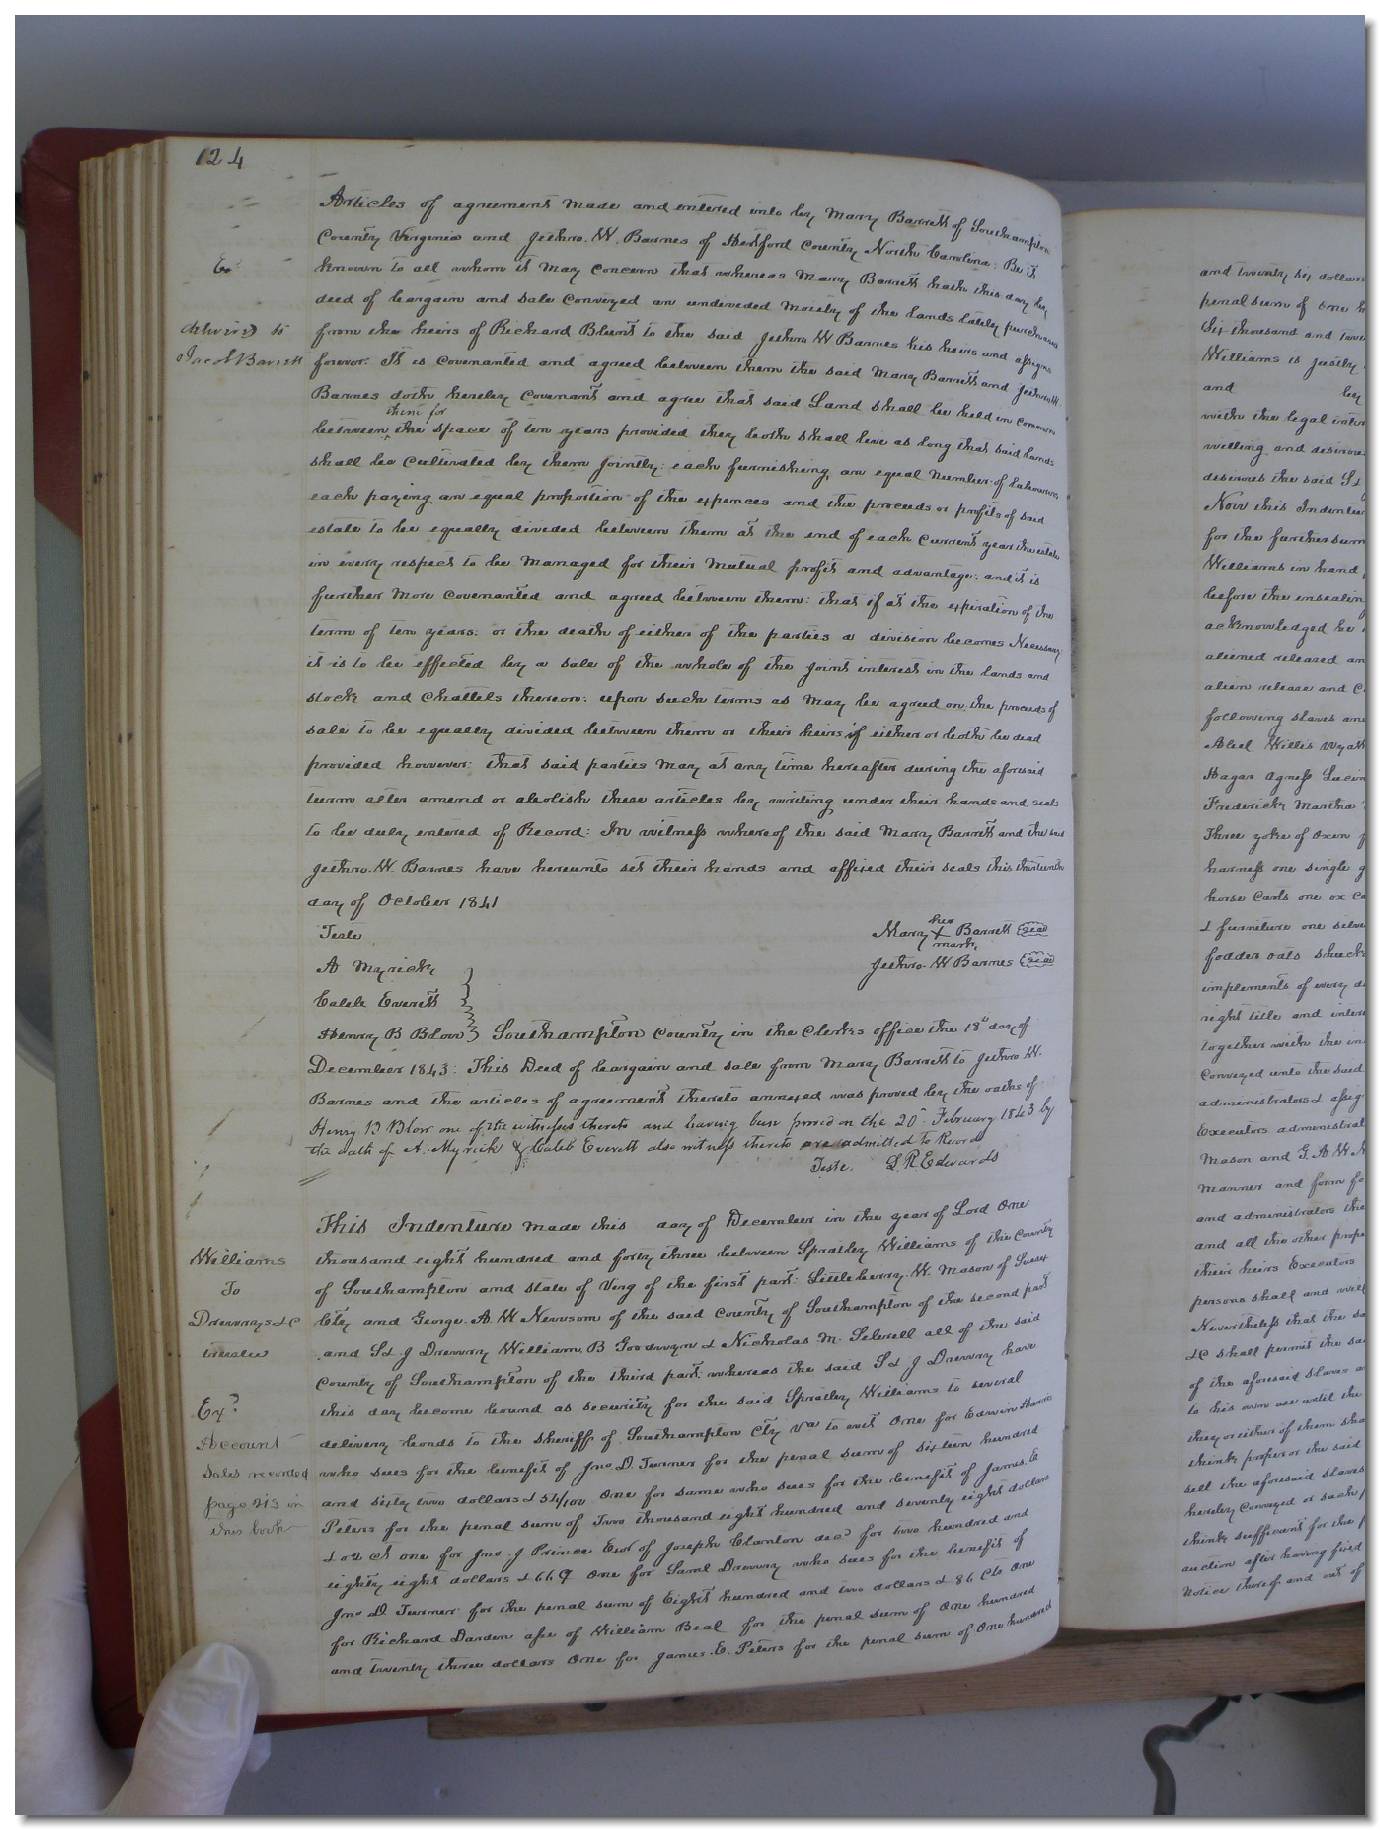 124
Articles of agreement made and entered into by Mary Barrett of Southampton
County Virginia and Jethro. W. Barnes of Hertford County North Carolina: Be it
known to all whom it may concern that whereas Mary Barrett hath this day by
deed of bargain and sale conveyed an undivided moiety of the lands lately purchased
from the heirs of Richard Blunt to the said Jethro W Barnes his heirs and assigns
forever. It is covenanted and agreed between them the said Mary Barrett and Jethro W.
Barnes doth hereby covenant and agree that said Land shall be held in common
them for
between the space of ten years provided they both shall live as long that said lands
shall be cultivated by them jointly: each furnishing, an equal number of labourers,
each paying an equal proportion of the expences and the proceeds or profits of said
estate to be equally divided between them at the end of each current year the estate
in every respect to be managed for their mutual profit and advantage: and it is
further more covenanted and agreed between them: that if at the expiration of the
term of ten years. or the death of either of the parties a division becomes necessary
it is to be effected by a sale of the whole of the joint interest in the lands and
stock and chattels thereon: upon such terms as may be agreed on the proceeds of
sale to be equally divided between them or their heirs if either or both be dead
provided however: that said parties may at any time hereafter during the aforesaid
term alter amend or abolish these articles by writing under their hands and seals
to be duly entered of Record: In witness whereof the said Mary Barrett and the said
Jethro. W. Barnes have hereunto set their hands and affixed their seals this thirteenth
day of October 1841
Teste
her
Mary X Barrett seal
mark
A Myrick
Jethro. W Barnes seal
Caleb Everett
Henry B Blow
Southampton County in the Clerks office the 18th day of
December 1843: This Deed of bargain and sale from Mary Barrett to Jethro W.
Barnes and the articles of agreement thereto annexed was proved by the oaths of
Henry B Blow one of the witnesses thereto and having been proved on the 20th February 1843 by
the oath of A. Myrick & Caleb Everett also witness thereto are admitted to Record
Teste. L R Edwards
delivered to
Jacob Barrett
This Indenture made this day of December in the year of Lord One
thousand eight hundred and forty three between Spratley Williams of the County
of Southampton and state of Virg of the first part: Littleberry. W. Mason of Sussex
Cty and George. A. W Newsom of the said County of Southampton of the second part
and S & J Drewry William. B Goodwyn & Nicholas M. Sebrell all of the said
County of Southampton of the third part: whereas the said S & J Drewry have
this day become bound as security for the said Spratley Williams to several
delivery bonds to the sheriff of Southampton Cty Va to wit One for Edwin Harris
who sues for the benefit of Jno. D. Turner for the penal sum of sixteen hundred
and sixty two dollars & 54/100 One for same who sues for the benefit of James. E
Peters for the penal sum of Two thousand eight hundred and seventy eight dollars
one for Jno. J Prince Exor of Joseph Clanton decd for two hundred and
eighty eight dollars & 66 One for Saml Drewry who sues for the benefit of
Jno D. Turner for the penal sum of Eight hundred and two dollars & 86 Cts One
for Richard Darden asse of William Beal for the penal sum of One hundred
and twenty three dollars One for James. E. Peters for the penal sum of One hundred
Williams
To
Drewrys &c
trustee
Exd
Account
Sales recorded
page 213 in
this book
and twenty six dollars
penal sum of one
Six thousand and
Williams is justly
and by
with the legal
willing and
desirous the said S &
Now this
for the further sum
Williams in hand
before the
acknowledged
aliened released
alien release and
following slaves
Abel Willis Wyatt
Hagar Agness
Frederick Martha
Three yoke of Oxen
harness one single
horse Carts one ox
& furniture one
fodder oats
implements of every
right title and
together with the
Conveyed unto the said
administrators &
Executors
Mason and G. A W
manner and form
and administrators
and all the other
their heirs Executors
persons shall and
Nevertheless that the
&C shall permit the
of the aforesaid slaves
to his own use until the
they or either of them
think proper or the said
sell the aforesaid slaves
hereby conveyed or such
think sufficient for the
auction after having fixed
Notice thereof and out of